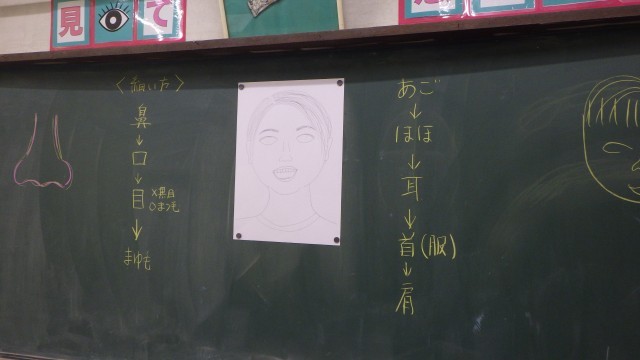 見
て
鼻
↓
口
↓
目
×黒目
○まつ毛
↓
まゆ毛
あご
↓
ほほ
↓
耳
↓
首(服)
↓
肩